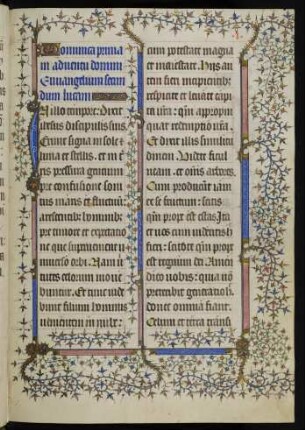 Dominica prima
in aduentu domini
Euuangelium secun
dum lucam
In illo tempore: Dixit
ihesus discipulis suis
Erunt signa in sole &
luna et stellis. et in t
ris pressura gentium
pre confusione soni
tus maris et fluctuum
arescentibus hominibus
pre timore et expectatio
ne que superuenient u
niuerso orbi. Nam ui
tutes celorum moue
buntur. Et tunc uide
bunt filium hominis
uenientem in nube:
cum potestate magna
et maiestate. Hiis au
tem fieri incipientibus:
respicite et leuate capi
ta ura: qm appropin
quat redemptio ura.
Et dixit illis similitu
dinem. Videte ficul
neam. et omnes arbores.
Cum producunt iam
ex se fructum: scitis
qm prope est estas. Ita
et uos cum uideritis hec
fieri: scitote qm prope
est regnum dei. Amen
dico uobis: quia non
preteribit generatio hec
donec omnia fiant.
Celum et terra transi